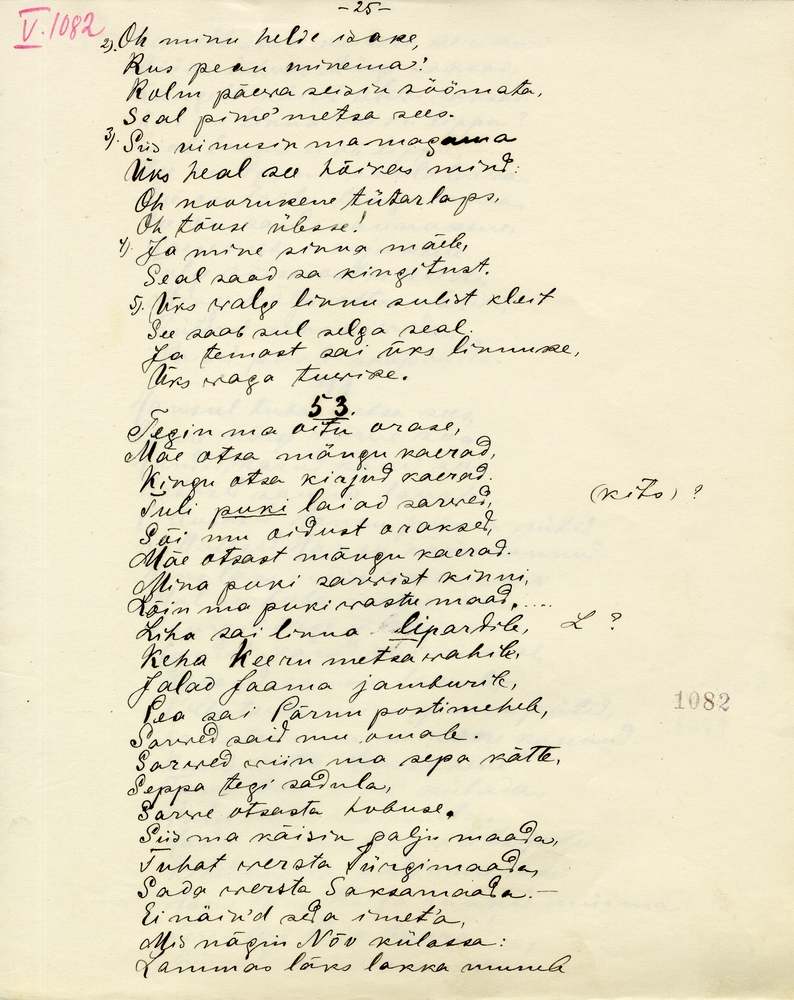 -25-
V.1082
2). Oh minu helde isake,
Kus pean minema!
Kolm päewa seisin söömata,
Seal pime' metsa sees.
3). Siis uinusin ma magama
Üks heal see hõikas mind:
Oh noorukene tütarlaps,
Oh tõuse ülesse!
4). Ja mine sinna mäele,
Seal saad sa kingitust.
5). Üks walge linnu sulist kleit
See saab sul selga seal.
Ja temast sai üks linnuke,
Üks waga tuwike.
53.
Tegin ma oitu orase,
Mäe otsa mängu kaerad,
Kingu otsa kirjud kaerad.
Tuli puki laiad sarwed, (kits) ?
Sõi mu oidust oraksed,
Mäe otsast mängu kaerad.
Mina puki sarwist kinni,
Lõin ma puki wastu maad. ....
Liha sai linna lipardile, L ?
Keha keeru metsawahile,
Jalad Jaama jamburile,
Pea sai Pärnu postimehele,
Sarwed said mu omale.
Sarwed wiin ma sepa kätte,
Seppa tegi sadula,
Sarwe otsasta hobuse.
Siis ma käisin palju maada,
Tuhat wersta Türgimaada,
Sada wersta Saksamaada.—
Ei näin'd seda imet'a,
Mis nägin Nõo külassa:
Lammas läks lakka munele
1082